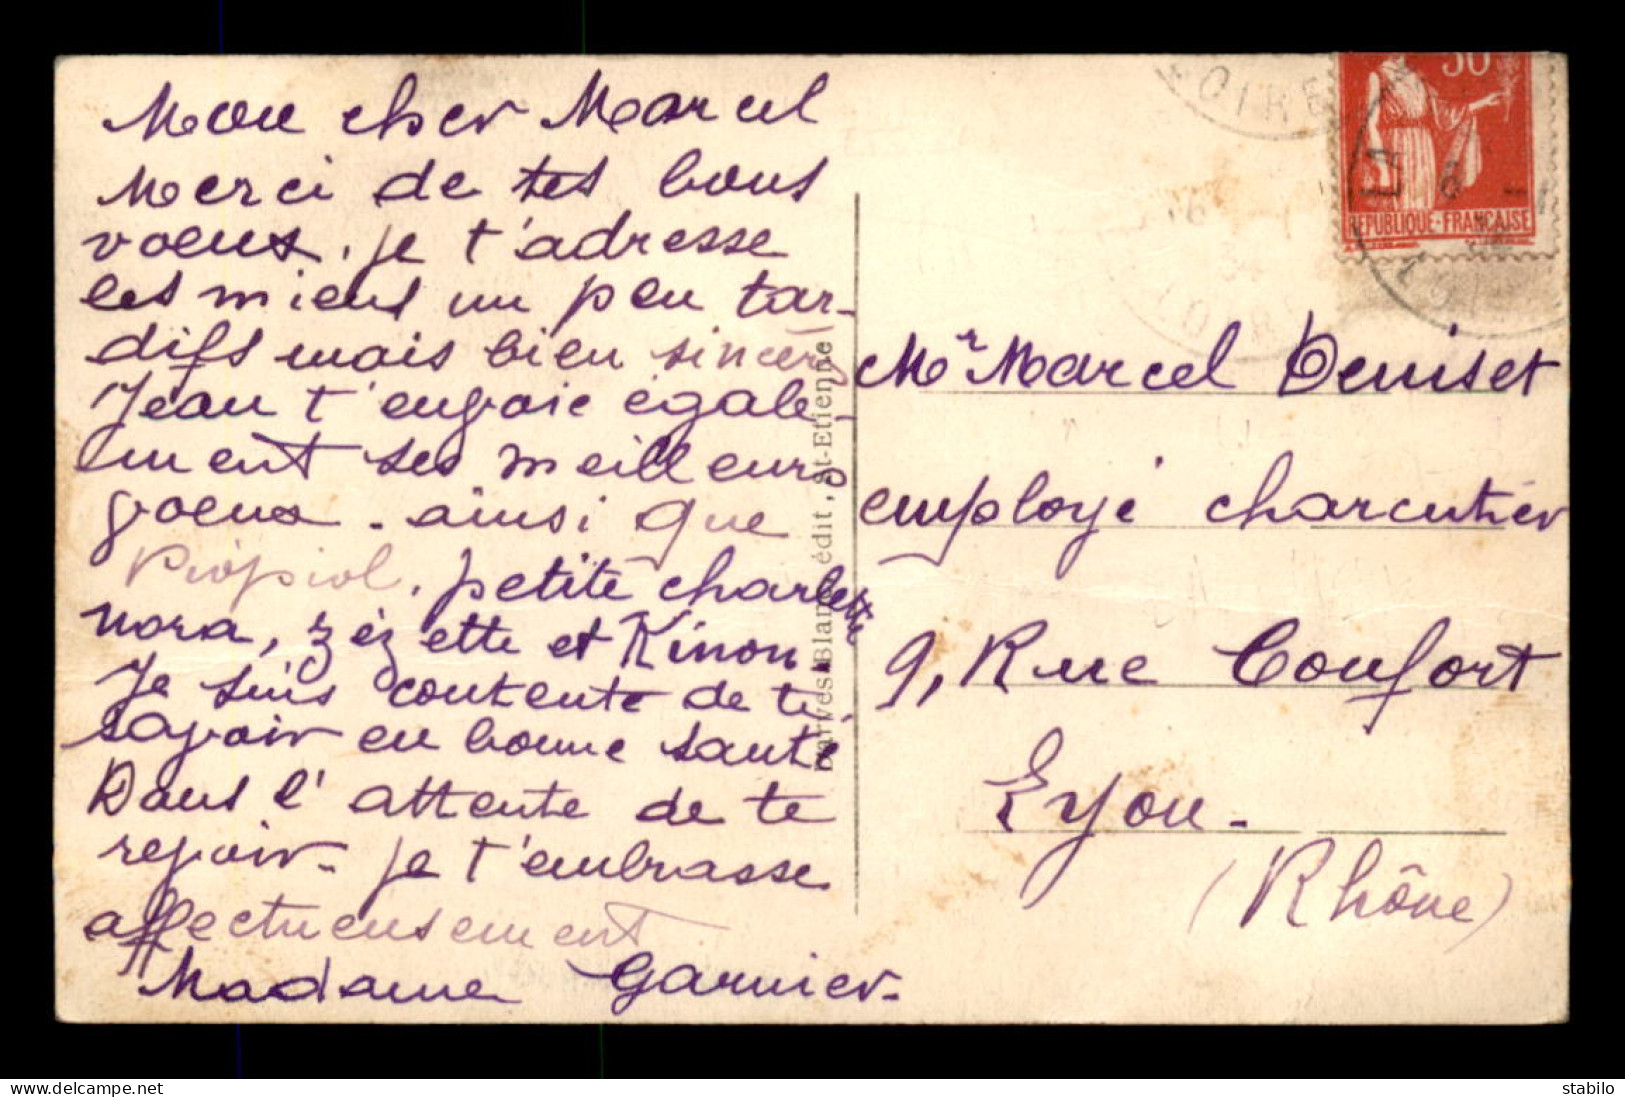 Mon cher Marcel
Merci de tes bons
voeux. je t'adresse
les miens un peu tar-
difs mais bien sincères
Jean t'envoie égale-
ment ses meilleurs
voeux - ainsi que
petite charlotte
nora, zézette et Kinon.
Je suis contente de te
savoir en bonne santé
Dans l'attente de te
revoir - je t'embrasse
affectueusement
Madame Garnier.
édit, St-Etienne
Mr Marcel Deniset
employé charcutier
9, Rue Confort
Lyon -
(Rhône)
50
REPUBLIQUE-FRANCAISE
LOIRE
LOIRE
34
www.delcampe.net
stabilo